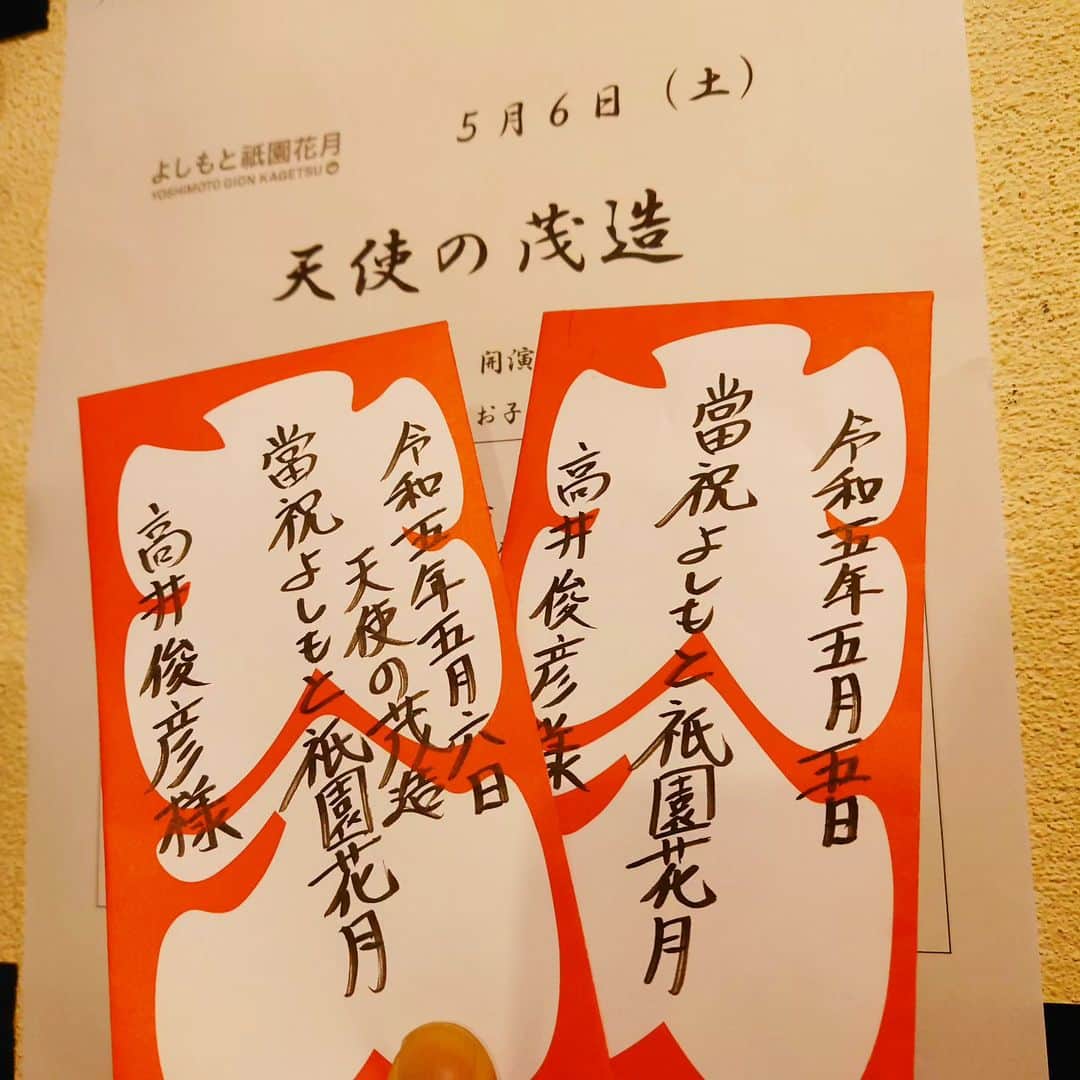 5月6日（土）
よしもと祇園花月
YOSHIMOTO GION KAGETSU
天使の茂造
開演
お子
令和五年五月五日
當祝よしもと祇園花月
高井俊彦様
令和五年五月六日
天使の茂造
當祝よしもと祇園花月
高井俊彦様